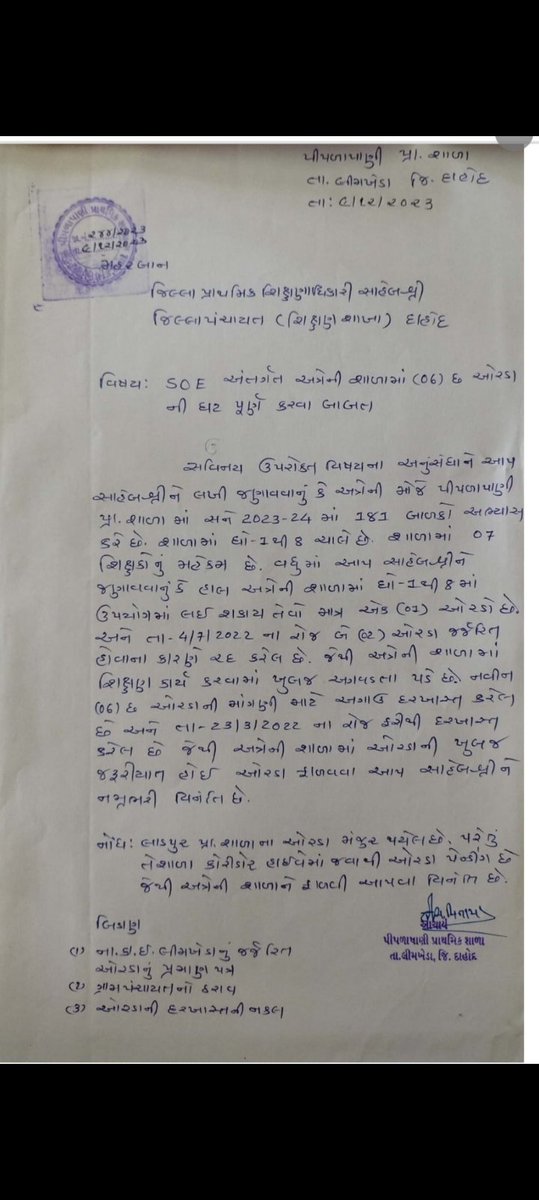 પીપળાપાણી પ્રા. શાળા
તા. લીમખેડા જિ. દાહોદ
તા: ૯/૧૨/૨૦૨૩
૨૪૪/૨૦૨૩
૯/૧૨/૨૦૨૩
મહેરબાન
જિલ્લા પ્રાથમિક શિક્ષણાધિકારી સાહેબશ્રી
જિલ્લાપંચાયત (શિક્ષણ શાખા) દાહોદ
વિષય: SOE અંતર્ગત અત્રેની શાળામાં (06) છ ઓરડા
ની ઘટ પૂર્ણ કરવા બાબત
સવિનય ઉપરોક્ત વિષયના અનુસંધાને આપ
સાહેબશ્રીને લખી જણાવવાનું કે અત્રેની મોજે પીપળાપાણી
પ્રા. શાળા માં સને 2023-24 માં 181 બાળકો અભ્યાસ
કરે છે. શાળામાં ધો-1થી 8 ચાલે છે. શાળામાં 07
શિક્ષકોનું મહેકમ છે. વધુમાં આપ સાહેબશ્રીને
જણાવવાનું કે હાલ અત્રેની શાળામાં ધો-1થી 8 માં
ઉપયોગમાં લઈ શકાય તેવો માત્ર એક (01) ઓરડો છે.
અને તા-4/7/2022 ના રોજ બે (02) ઓરડા જર્જરિત
હોવાના કારણે રદ કરેલ છે. જેથી અત્રેની શાળામાં
શિક્ષણ કાર્ય કરવામાં ખુબજ અગવડતા પડે છે. નવીન
(06) છ ઓરડાની માંગણી માટે અગાઉ દરખાસ્ત કરેલ
છે અને તા-23/3/2022 ના રોજ ફરીથી દરખાસ્ત
કરેલ છે જેથી અત્રેની શાળામાં ઓરડાની ખુબજ
જરૂરીયાત હોઈ ઓરડા ફાળવવા આપ સાહેબશ્રીને
નમ્રભરી વિનંતિ છે.
નોંધ: લાડપુર પ્રા. શાળાના ઓરડા મંજુર થયેલ છે. પરંતુ
તે શાળા કોરીડોર હાઈવેમાં જવાથી ઓરડા પેન્ડીંગ છે
જેથી અત્રેની શાળાને ફાળવી આપવા વિનંતિ છે.
આચાર્ય
પીપળાપાણી પ્રાથમિક શાળા
તા.લીમખેડા, જિ. દાહોદ
બિડાણ
(૧) ના.કા.ઈ. લીમખેડાનું જર્જરિત
ઓરડાનું પ્રમાણ પત્ર
(૨) ગ્રામપંચાયતનો ઠરાવ
(૩) ઓરડાની દરખાસ્તની નકલ